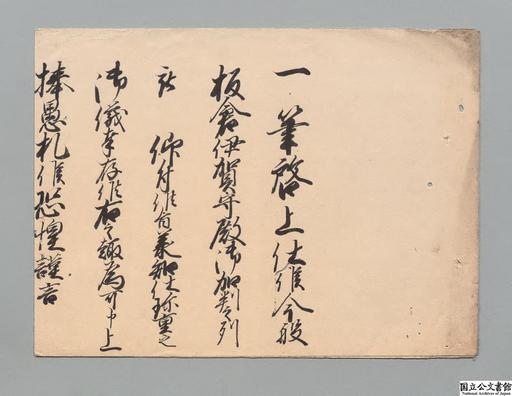 一筆啓上仕候今般
板倉伊賀守殿御加判之列
被 仰付候旨承知仕珎重之
御儀奉存候右之趣為可申上
捧愚札候恐惶謹言
国立公文書館
National Archives of Japan